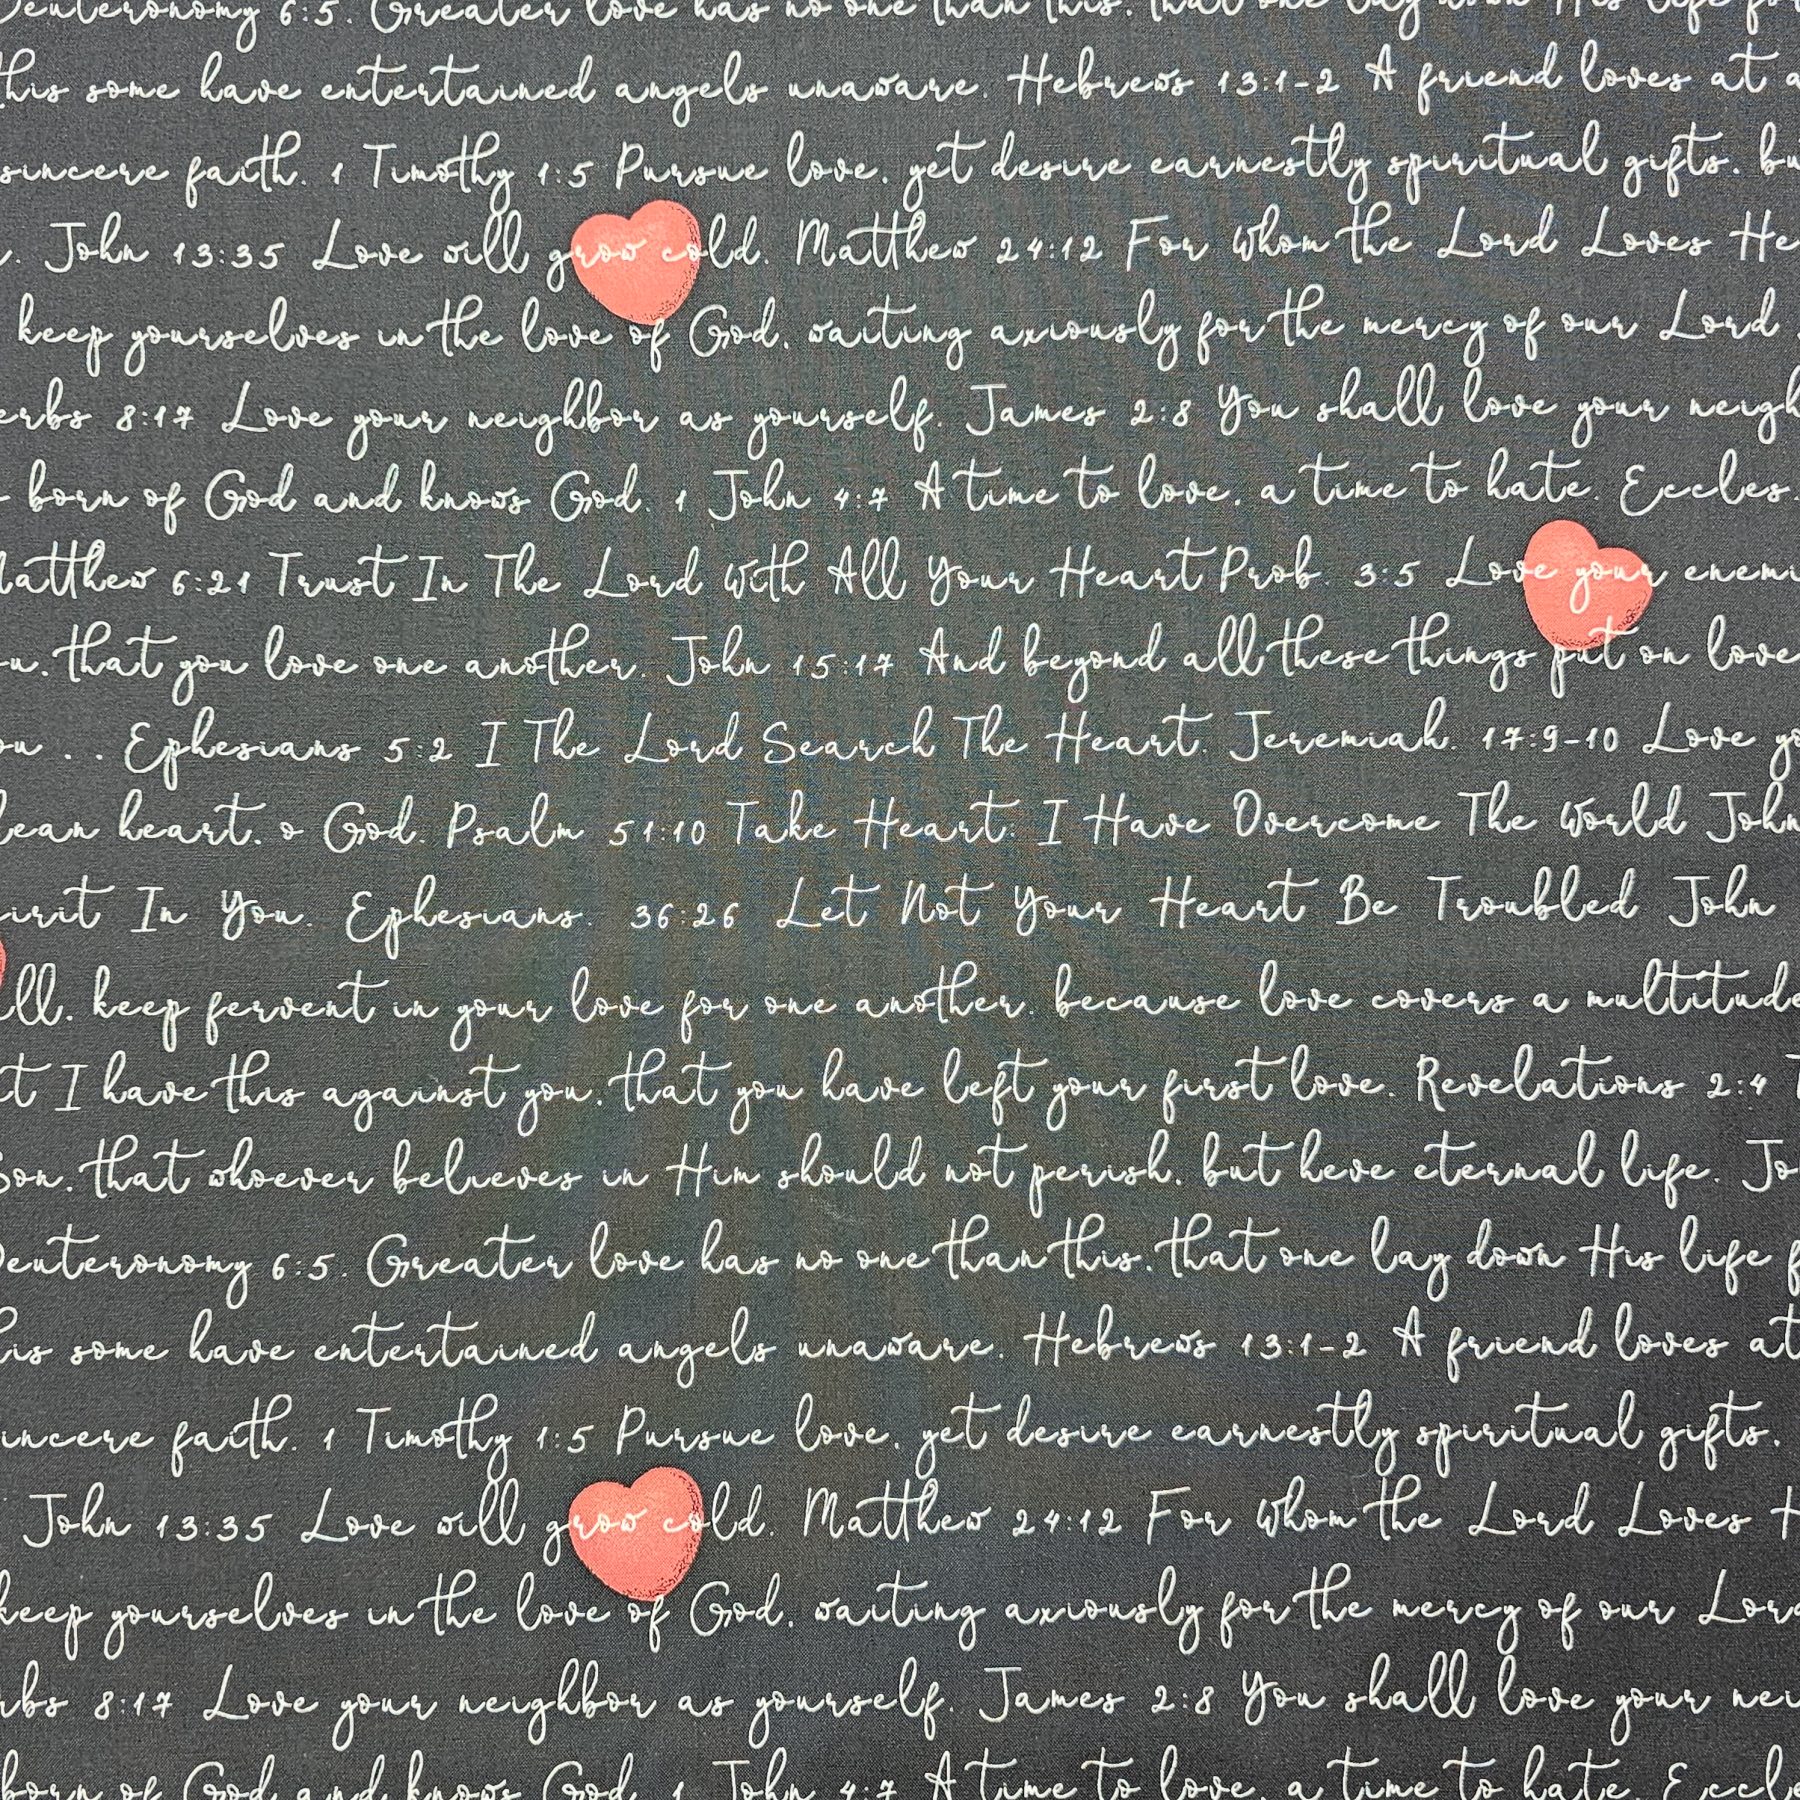 Deuteronomy 6:5. Greater love has no one than this, that one lay down His life for
this some have entertained angels unaware. Hebrews 13:1-2 A friend loves at a
sincere faith. 1 Timothy 1:5 Pursue love, yet desire earnestly spiritual gifts, bu
. John 13:35 Love will grow cold. Matthew 24:12 For Whom the Lord Loves He
keep yourselves in the love of God, waiting axiously for the mercy of our Lord
erbs 8:17 Love your neighbor as yourself. James 2:8 You shall love your neigh
born of God and knows God. 1 John 4:7 A time to love, a time to hate. Eccles.
Matthew 6:21 Trust In The Lord With All Your Heart Prob. 3:5 Love your enemi
u, that you love one another. John 15:17 And beyond all these things put on love
ou . . Ephesians 5:2 I The Lord Search The Heart. Jeremiah. 17:9-10 Love yo
lean heart, o God. Psalm 51:10 Take Heart: I Have Overcome The World John
irit In You. Ephesians. 36:26 Let Not Your Heart Be Troubled John
all, keep fervent in your love for one another, because love covers a multitude
t I have this against you, that you have left your first love. Revelations 2:4
Son, that whoever believes in Him should not perish, but heve eternal life. Jo
Deuteronomy 6:5. Greater love has no one than this, that one lay down His life f
his some have entertained angels unaware. Hebrews 13:1-2 A friend loves at
incere faith. 1 Timothy 1:5 Pursue love, yet desire earnestly spiritual gifts,
John 13:35 Love will grow cold. Matthew 24:12 For Whom the Lord Loves H
keep yourselves in the love of God, waiting axiously for the mercy of our Lord
rbs 8:17 Love your neighbor as yourself. James 2:8 You shall love your nei
born of God and knows God. 1 John 4:7 A time to love, a time to hate. Eccle